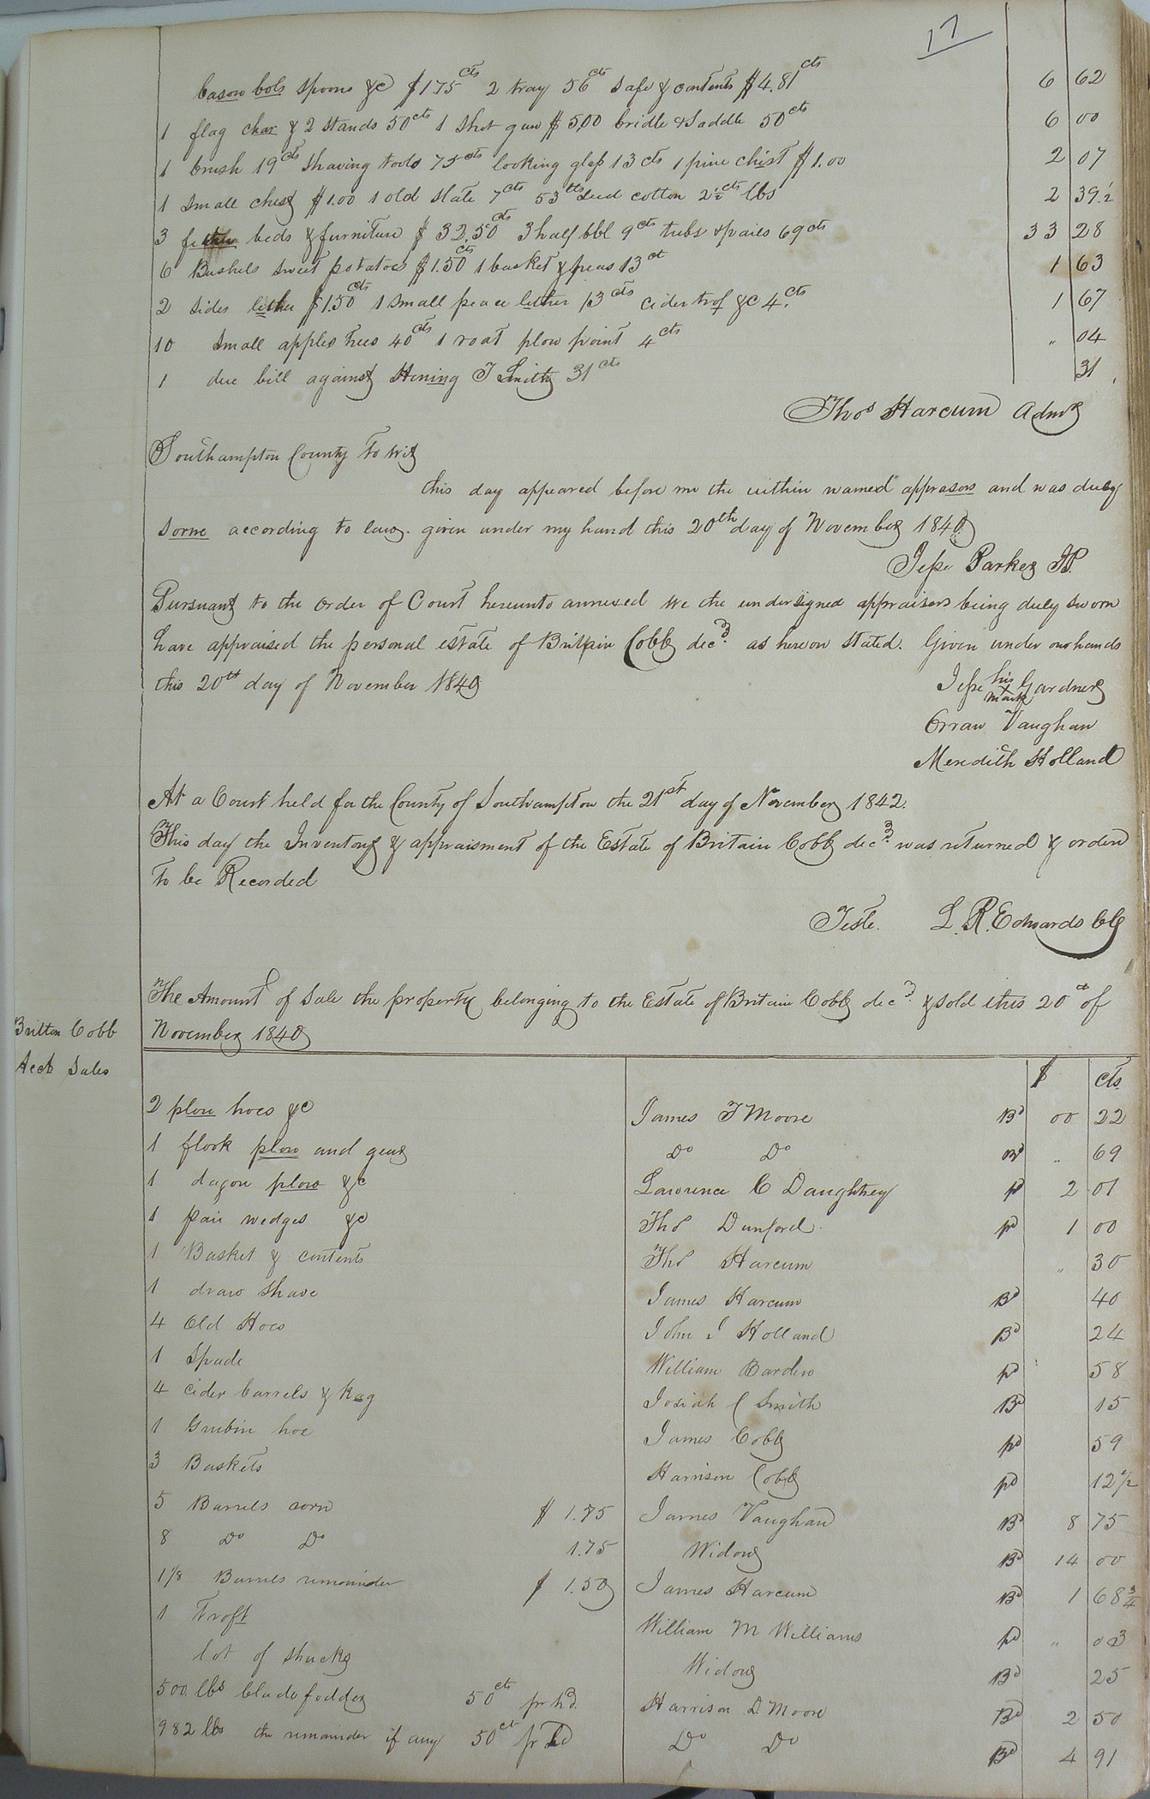 17
bason bols spoons &c $1.75cts 2 tray 56cts Safe & contents $4.81cts 6 62
1 flag char & 2 stands 50cts 1 Shot gun $5,00 bridle & Saddle 50cts 6 00
1 brush 19cts Shaving tools 75cts looking glass 13cts 1 pine chist $1.00 2 07
1 Small chest $1.00 1 old slate 7cts 53cts Seed cotton 2½cts lbs 2 39½
3 feather beds & furniture $32,50cts 3 half bbl 9cts tubs & pails 69cts 33 28
6 Bushels Sweet potatoes $1.50cts 1 basket & peas 13ct 1 63
2 Sides lether $1.50cts 1 Small peace lether 13cts Cider trof &c 4.cts 1 67
10 Small apples trees 40cts 1 roat plow point 4cts " 04
1 due bill against Hening T Smith 31cts 31
Thos Harcum Admr
Southampton County To wit
this day appeared before me the within named appraisors and was duly
Sorne according to law. given under my hand this 20th day of November 1840
Jesse Parker JP.
Pursuant to the order of Court hereunto annexed we the undersigned appraisers being duly sworn
have appraised the personal estate of Britain Cobb decd. as hereon stated. Given under our hands
this 20th day of November 1840
Jesse his mark Gardner
Orran Vaughan
Meredith Holland
At a Court held for the County of Southampton the 21st day of November 1842.
This day the Inventory & appraisment of the Estate of Britain Cobb decd. was returned & orderd
To be Recorded
Teste. L. R. Edwards Clk
The Amount of Sale the property belonging to the Estate of Britain Cobb decd. & sold this 20th of
Britton Cobb November 1840
Acct Sales
$ cts
2 plow hoes &c James T Moore Bd 00 22
1 flook plow and gear Do Do Bd " 69
1 dagon plow &c Lawrence C Daughtrey pd 2 01
1 pair wedges &c Thos Dunford pd 1 00
1 Basket & contents Thos Harcum " 30
1 draw Shave James Harcum Bd 40
4 Old Hoes John J Holland Bd 24
1 Spade William Barden pd 58
4 cider barrels & Kag Josiah C Smith Bd 15
1 Grubin hoe James Cobb pd 59
3 Baskets Harrison Cobb pd 12½
5 Barrels corn $1.75 James Vaughan Bd 8 75
8 Do Do 1.75 Widow Bd 14 00
1⅛ Barrels remainder $1.50 James Harcum Bd 1 68¾
1 Troft William M Williams pd " 03
lot of Shucks Widow Bd 25
500 lbs blade fodder 50ct pr hd. Harrison D Moore Bd 2 50
982 lbs the remainder if any 50ct pr hd Do Do Bd 4 91